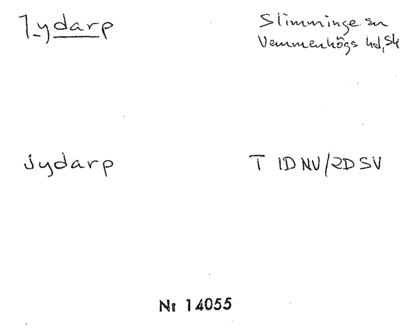 Jydarp
Slimminge sn
Vemmenhögs hd, Sk
Jydarp
T 1D NV/2D SV
Nr 14055